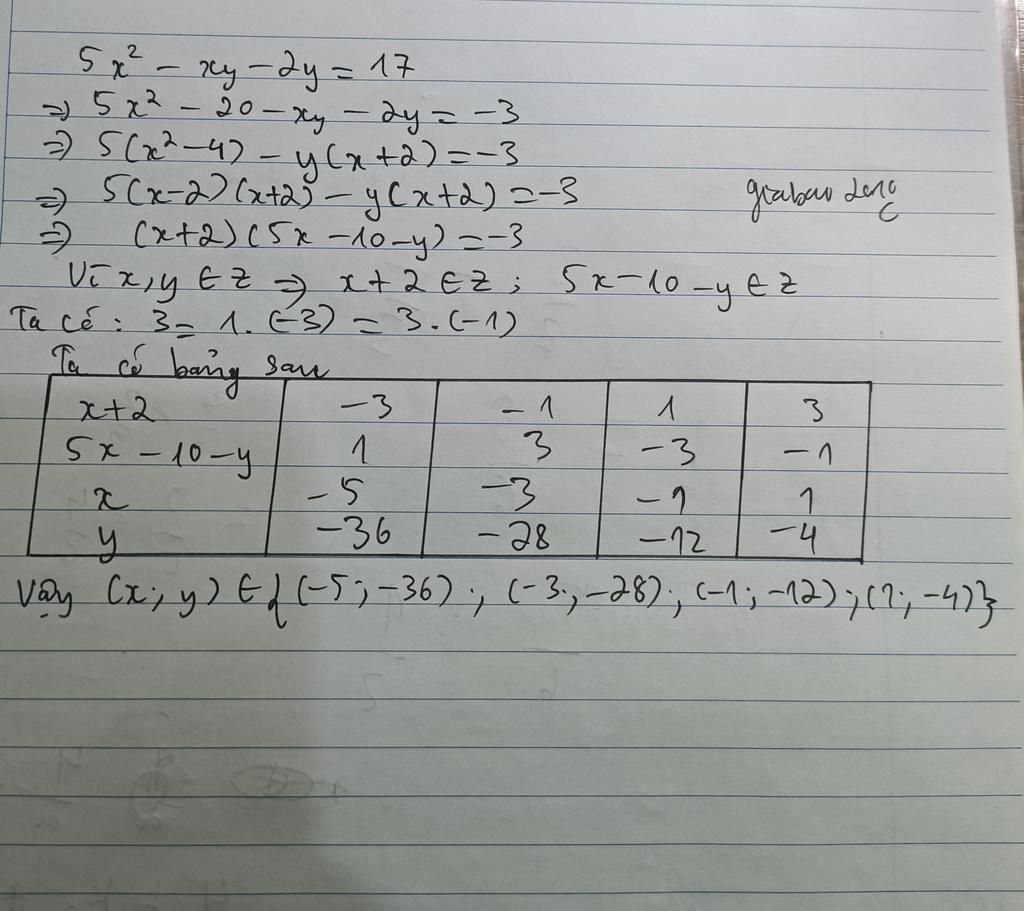 5x² - xy - 2y = 17
⇒ 5x² - 20 - xy - 2y = -3
⇒ 5(x²-4) - y(x+2) = -3
⇒ 5(x-2)(x+2) - y(x+2) = -3
⇒ (x+2)(5x - 10 - y) = -3
Vì x, y ∈ Z ⇒ x + 2 ∈ Z ; 5x - 10 - y ∈ Z
Ta có : 3 = 1 . (-3) = 3 . (-1)
Ta có bảng sau
x+2 -3 -1 1 3
5x - 10 - y 1 3 -3 -1
x -5 -3 -1 1
y -36 -28 -12 -4
Vậy (x; y) ∈ {(-5; -36) ; (-3; -28) ; (-1; -12) ; (1; -4)}